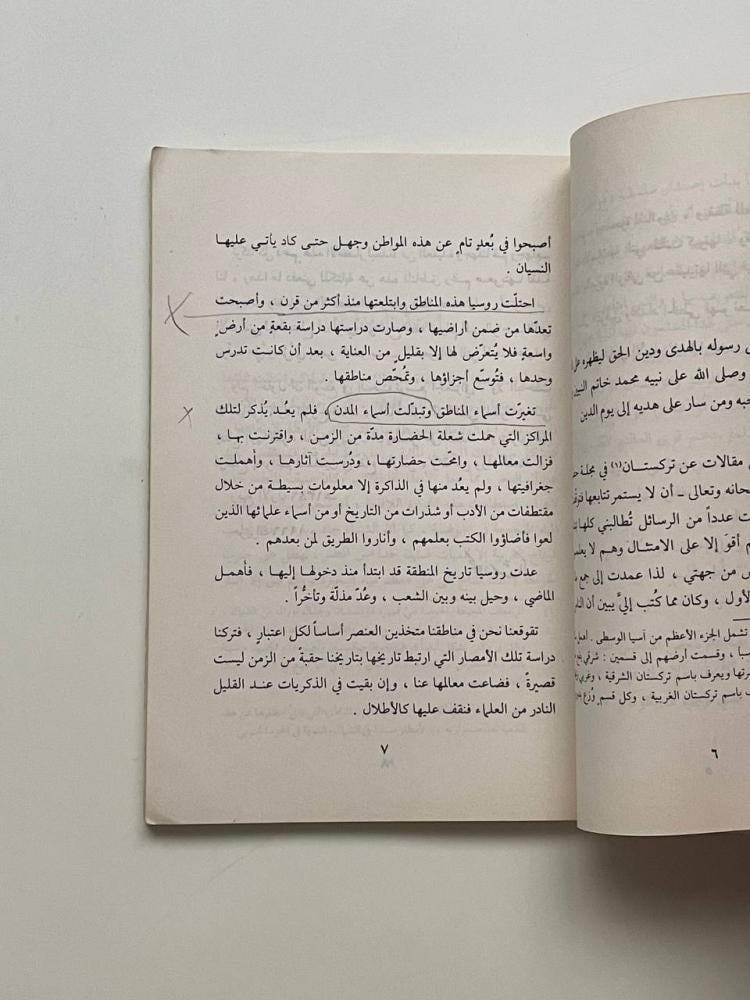 ى رسوله بالهدى ودين الحق ليظهره على
وصلى الله على نبيه محمد خاتم النبيين
حبه ومن سار على هديه إلى يوم الدين
مقالات عن تركستــان(١) في مجلة
حانه وتعالى ـ أن لا يستمر تتابعها
ت عدداً من الرسائل تُطالبني كلها
م أقوَ إلا على الامتثال وهم لا
من جهتي ، لذا عمدت إلى جمع
لأول ، وكان مما كُتب إليَّ يبين أن
تشمل الجزء الأعظم من آسيا الوسطى .
، وقسمت أرضهم إلى قسمين : شرقي
ويعرف باسم تركستان الشرقية ،
باسم تركستان الغربية ، وكل قسم وُزع
٦
أصبحوا في بُعدٍ تامٍ عن هذه المواطن وجهل حتـى كاد يأتـي عليهـا
النسيان .
احتلّت روسيا هذه المناطق وابتلعتها منذ أكثر من قرن ، وأصبحت
تعدّها من ضمن أراضيها ، وصارت دراستها دراسة بقعةٍ من أرضٍ
واسعةٍ فلا يُتعرّض لها إلا بقليلٍ من العناية ، بعد أن كانت تدرس
وحدها ، فتُوسّع أجزاؤها ، وتُمحّص مناطقها .
تغيرّت أسماء المناطق وتبدلّت أسماء المدن ، فلم يعـد يُذكر لتلك
المراكز التي حملت شعلة الحضـارة مدّة من الزمـن ، واقترنت بهـا ،
فزالت معالمهـا ، وامحّت حضارتهـا ، ودُرسـت آثارهـا ، وأهملـت
جغرافيتها ، ولم يعُد منها في الذاكرة إلا معلومات بسيطـة من خلال
مقتطفات من الأدب أو شذرات من التاريخ أو من أسماء علمائها الذين
لعوا فأضاؤوا الكتب بعلمهم ، وأناروا الطريق لمن بعدهم .
عدت روسيا تاريخ المنطقة قد ابتدأ منذ دخولها إليهـا ، فأهمـل
الماضي ، وحيل بينه وبين الشعب ، وعُدّ مذلّة وتأخُّراً .
تقوقعنا نحن في مناطقنا متخذين العنصر أساساً لكل اعتبار ، فتركنا
دراسة تلك الأمصار التي ارتبط تاريخها بتاريخنا حقبةً من الزمن ليست
قصيرةً ، فضاعت معالمها عنا ، وإن بقيت في الذكريات عنـد القليل
النادر من العلماء فنقف عليها كالأطلال .
٧